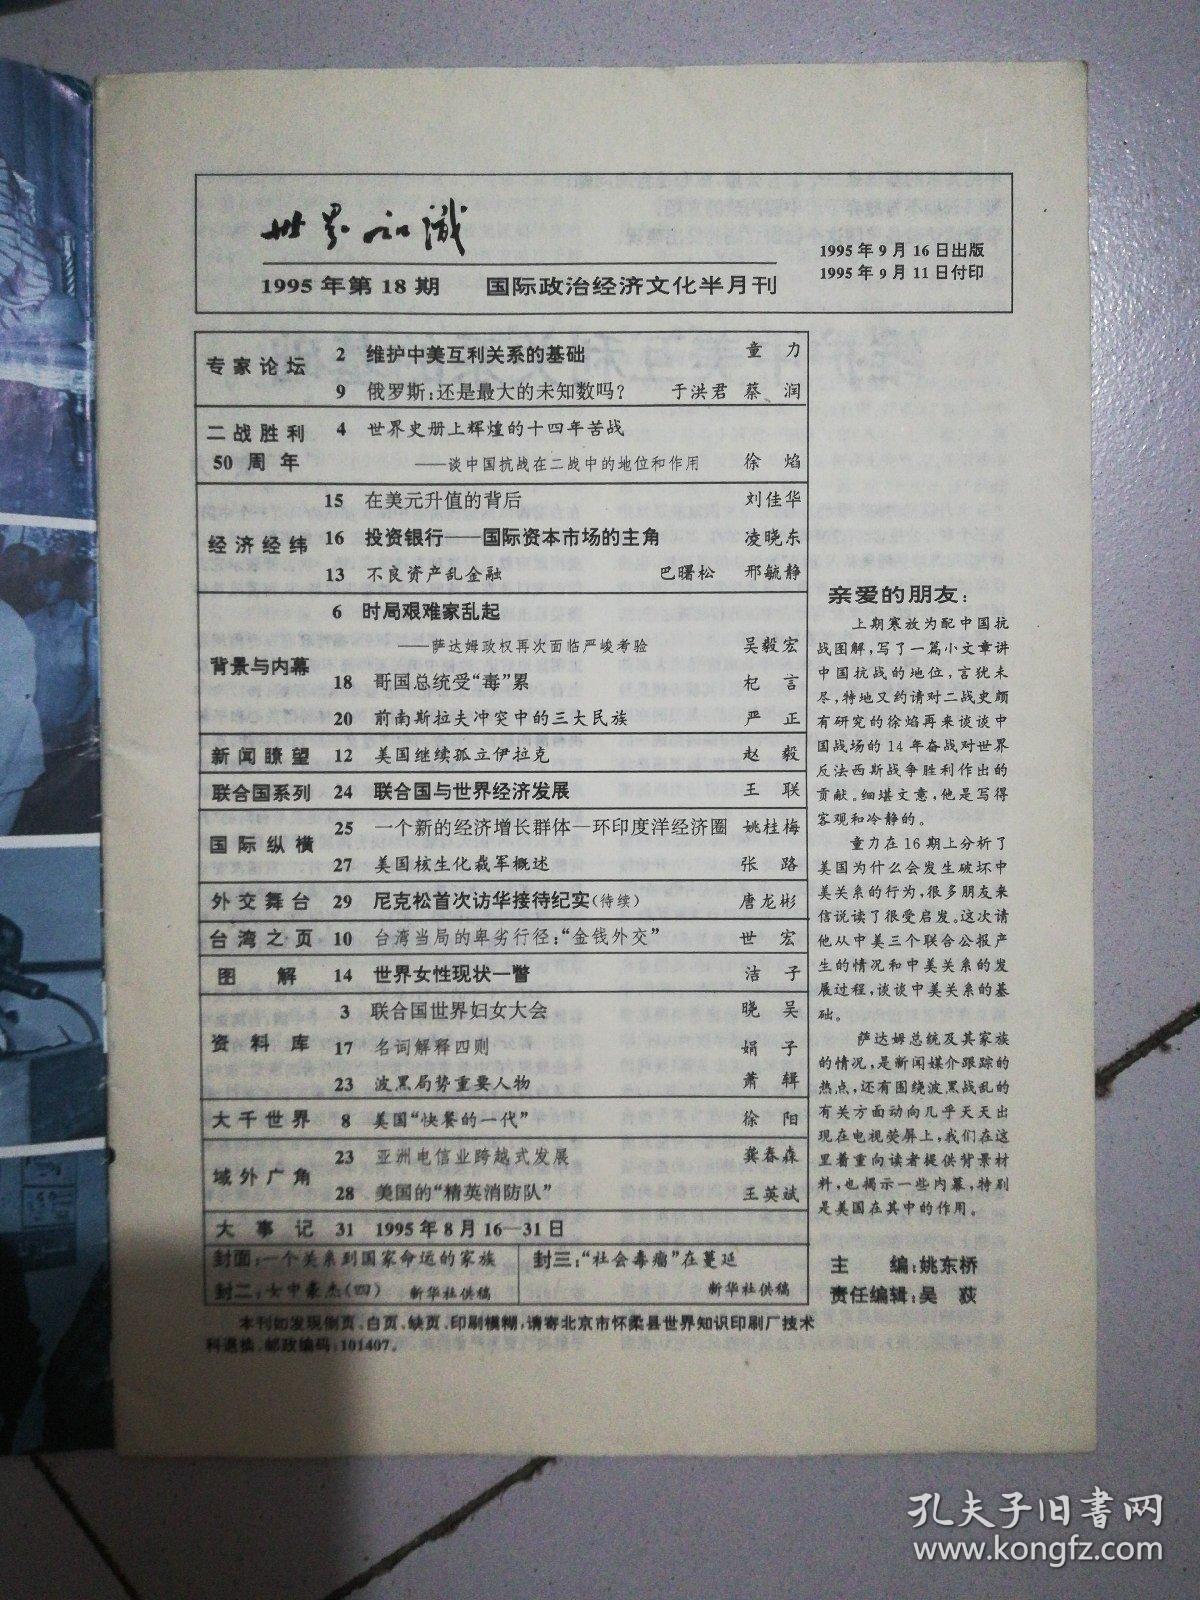 世界知识
1995年第18期 国际政治经济文化半月刊
1995年9月16日出版
1995年9月11日付印
专家论坛
2 维护中美互利关系的基础 童力
9 俄罗斯:还是最大的未知数吗? 于洪君 蔡润
二战胜利
50周年
4 世界史册上辉煌的十四年苦战
——谈中国抗战在二战中的地位和作用 徐焰
经济经纬
15 在美元升值的背后 刘佳华
16 投资银行——国际资本市场的主角 凌晓东
13 不良资产乱金融 巴曙松 邢毓静
背景与内幕
6 时局艰难家乱起
——萨达姆政权再次面临严峻考验 吴毅宏
18 哥国总统受“毒”累 杞言
20 前南斯拉夫冲突中的三大民族 严正
新闻瞭望 12 美国继续孤立伊拉克 赵毅
联合国系列 24 联合国与世界经济发展 王联
国际纵横
25 一个新的经济增长群体—环印度洋经济圈 姚桂梅
27 美国核生化裁军概述 张路
外交舞台 29 尼克松首次访华接待纪实(待续) 唐龙彬
台湾之页 10 台湾当局的卑劣行径:“金钱外交” 世宏
图解 14 世界女性现状一瞥 洁子
资料库
3 联合国世界妇女大会 晓吴
17 名词解释四则 娟子
23 波黑局势重要人物 萧辑
大千世界 8 美国“快餐的一代” 徐阳
域外广角
23 亚洲电信业跨越式发展 龚春森
28 美国的“精英消防队” 王英斌
大事记 31 1995年8月16—31日
封面:一个关系到国家命运的家族
封二:女中豪杰(四) 新华社供稿
封三:“社会毒瘤”在蔓延
新华社供稿
本刊如发现倒页、白页、缺页、印刷模糊,请寄北京市怀柔县世界知识印刷厂技术
科退换。邮政编码:101407。
亲爱的朋友:
上期寒放为配中国抗
战图解,写了一篇小文章讲
中国抗战的地位,言犹未
尽,特地又约请对二战史颇
有研究的徐焰再来谈谈中
国战场的14年奋战对世界
反法西斯战争胜利作出的
贡献。细堪文意,他是写得
客观和冷静的。
童力在16期上分析了
美国为什么会发生破坏中
美关系的行为,很多朋友来
信说读了很受启发。这次请
他从中美三个联合公报产
生的情况和中美关系的发
展过程,谈谈中美关系的基
础。
萨达姆总统及其家族
的情况,是新闻媒介跟踪的
热点,还有围绕波黑战乱的
有关方面动向几乎天天出
现在电视荧屏上,我们在这
里着重向读者提供背景材
料,也揭示一些内幕,特别
是美国在其中的作用。
主编:姚东桥
责任编辑:吴荻
孔夫子旧书网
www.kongfz.com